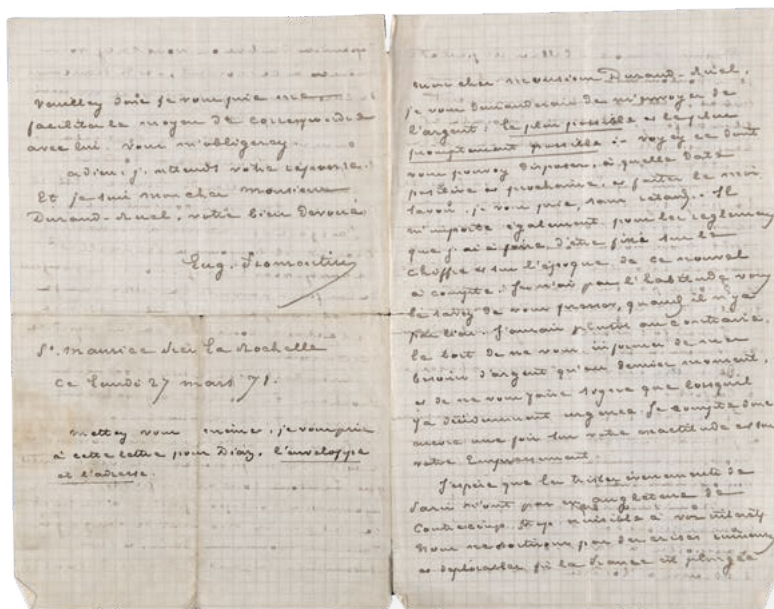 veuillez donc je vous prie me
faciliter le moyen de correspondre
avec lui. vous m'obligerez.
adieu, j'attends votre réponse.
Et je suis mon cher monsieur
Durand-Ruel, votre bien Dévoué
Eug. Fromentin
St. Maurice près La Rochelle
ce lundi 27 mars 71.
mettez vous même, je vous prie
à cette lettre pour Diaz, l'enveloppe
et l'adresse.
mon cher monsieur Durand-Ruel,
je vous demanderai de m'envoyer de
l'argent, le plus possible et le plus
promptement possible :- voyez ce dont
vous pouvez disposer, à quelle date
positive et prochaine, et faites le moi
savoir, je vous prie, sans retard. Il
m'importe également, pour les règlements
que j'ai à faire, d'être fixé sur le
chiffre et sur l'époque de ce nouvel
à compte. Je n'ai pas l'habitude vous
le savez de vous presser, quand il n'y a
pas lieu. J'aurais plutôt au contraire,
le tort de ne vous informer de mes
besoins d'argent qu'au dernier moment,
et de ne vous faire signe que lorsqu'il
y a décidément urgence. Je compte donc
encore une fois sur votre exactitude et sur
votre Empressement.
J'espère que les tristes évènements de
Paris n'ont pas en angleterre de
contrecoup trop nuisible à vos intérêts
Nous ne sortirons pas des crises
et déplorables où la France est plongée